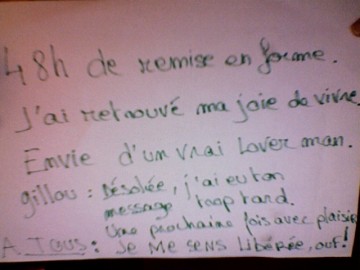 48h de remise en forme.
J'ai retrouvé ma joie de vivre
Envie d'un vrai Lover man.
gillou : Désolée, j'ai eu ton
message trop tard.
Une prochaine fois avec plaisir
A TOUS : Je me sens Libérée, ouf!